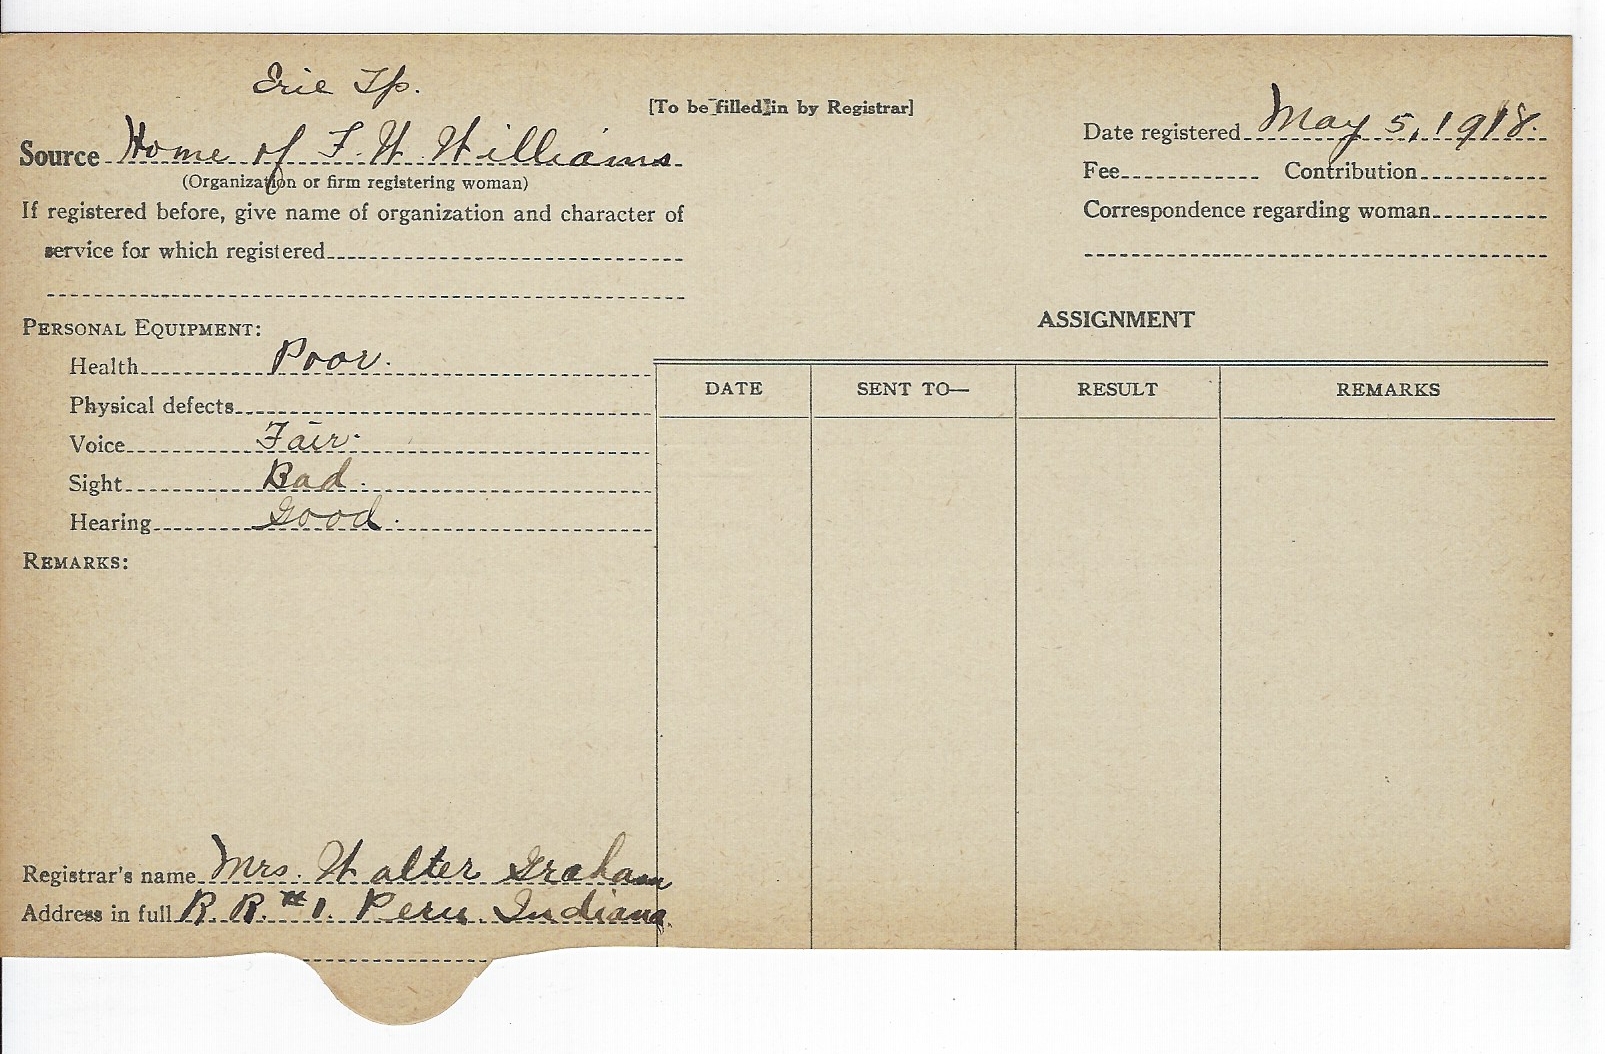 Erie Tp.
[To be filled in by Registrar]
Source Home of F. W Williams
(Organization or firm registering woman)
If registered before, give name of organization and character of
service for which registered
Date registered May 5, 1918.
Fee Contribution
Correspondence regarding woman
PERSONAL EQUIPMENT:
Health Poor.
Physical defects
Voice Fair.
Sight Bad.
Hearing Good.
REMARKS:
ASSIGNMENT
DATE SENT TO— RESULT REMARKS
Registrar's name Mrs. Walter Graham
Address in full R. R. #1. Peru, Indiana.